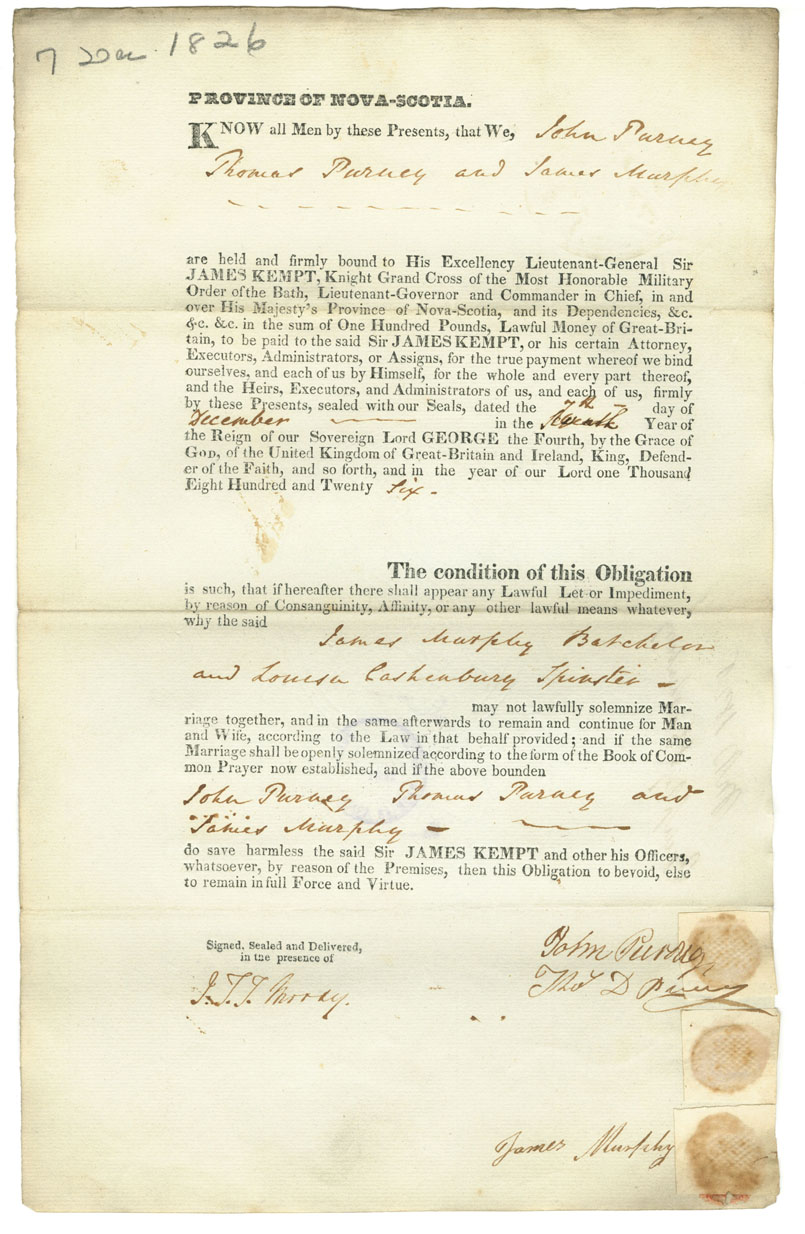 7 Dec 1826
PROVINCE OF NOVA-SCOTIA.
KNOW all Men by these Presents, that We, John Purney
Thomas Purney and James Murphy
are held and firmly bound to His Excellency Lieutenant-General Sir
JAMES KEMPT, Knight Grand Cross of the Most Honorable Military
Order of the Bath, Lieutenant-Governor and Commander in Chief, in and
over His Majesty's Province of Nova-Scotia, and its Dependencies, &c.
&c. &c. in the sum of One Hundred Pounds, Lawful Money of Great-Bri-
tain, to be paid to the said Sir JAMES KEMPT, or his certain Attorney,
Executors, Administrators, or Assigns, for the true payment whereof we bind
ourselves, and each of us by Himself, for the whole and every part thereof,
and the Heirs, Executors, and Administrators of us, and each of us, firmly
by these Presents, sealed with our Seals, dated the 7th day of
December in the Year of
the Reign of our Sovereign Lord GEORGE the Fourth, by the Grace of
GOD, of the United Kingdom of Great-Britain and Ireland, King, Defend-
er of the Faith, and so forth, and in the year of our Lord one Thousand
Eight Hundred and Twenty Six.
The condition of this Obligation
is such, that if hereafter there shall appear any Lawful Let or Impediment,
by reason of Consanguinity, Affinity, or any other lawful means whatever,
why the said
James Murphy Batchelor
and Louisa Cashenbury Spinster
may not lawfully solemnize Mar-
riage together, and in the same afterwards to remain and continue for Man
and Wife, according to the Law in that behalf provided; and if the same
Marriage shall be openly solemnized according to the form of the Book of Com-
mon Prayer now established, and if the above bounden
John Purney Thomas Purney and
James Murphy
do save harmless the said Sir JAMES KEMPT and other his Officers,
whatsoever, by reason of the Premises, then this Obligation to be void, else
to remain in full Force and Virtue.
Signed, Sealed and Delivered,
in the presence of
J.T.T. Moody.
John Purney
Thos D Purney
James Murphy